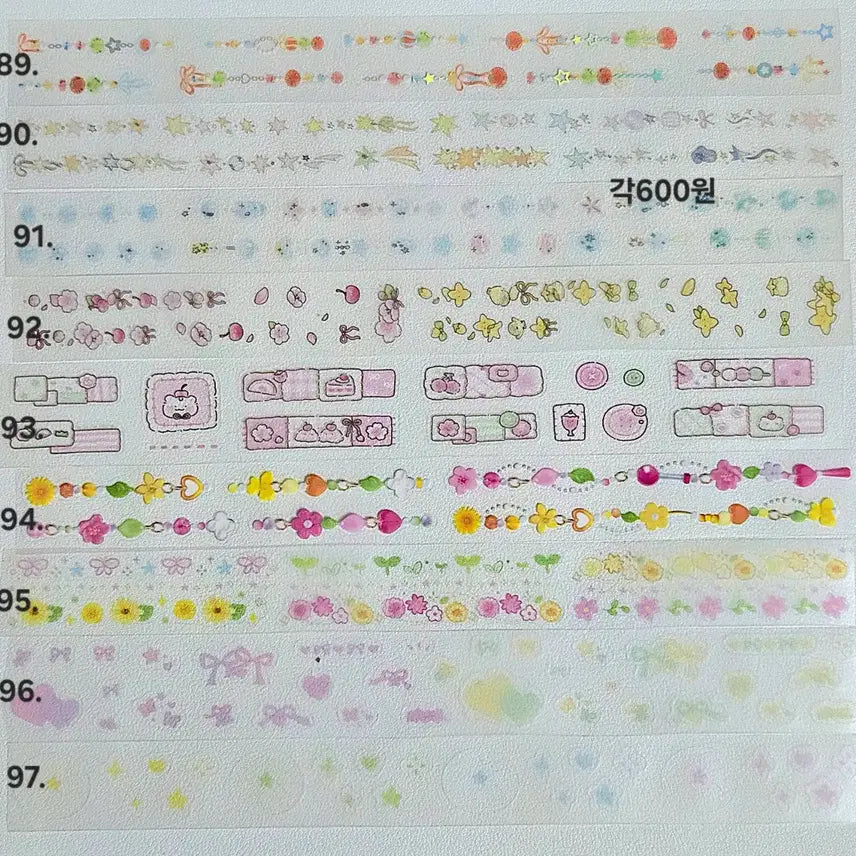 89.
90.
각600원
91.
92.
93.
94.
95.
96.
97.